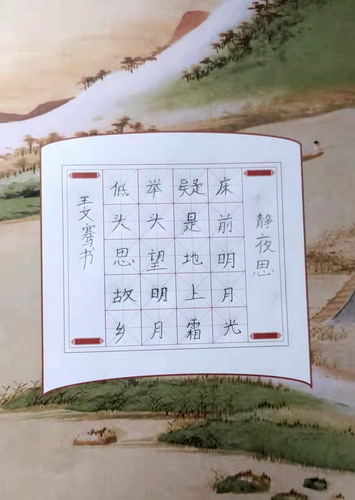 静夜思
床前明月光
疑是地上霜
举头望明月
低头思故乡
王文骞书